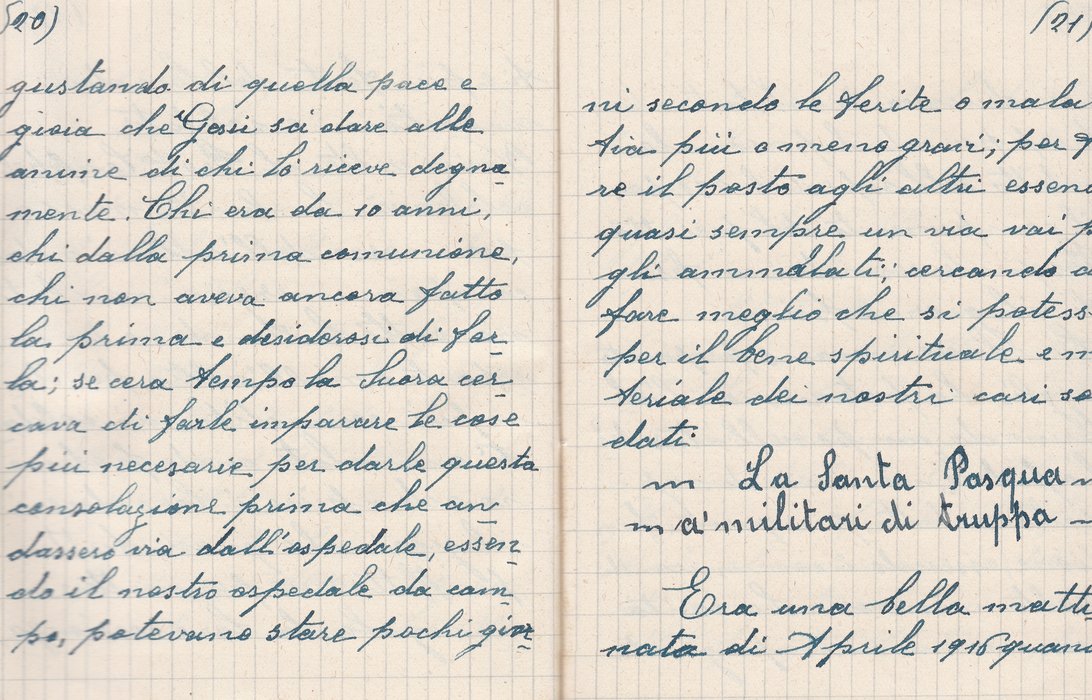 (20)
gustando di quella pace e
gioia che Gesù sai dare alle
anime di chi lo riceve degna
mente. Chi era da 10 anni,
chi dalla prima comunione,
chi non aveva ancora fatto
la prima e desiderosi di far-
la; se cera tempo la Suora cer-
cava di farle imparare le cose
più necesarie per darle questa
consolazione prima che an-
dassero via dall'ospedale, essen-
do il nostro ospedale da cam-
po, potevano stare pochi gior-
(21)
ni secondo le ferite o mala
tia più o meno gravi; per
re il posto agli altri essen
quasi sempre un via vai
gli ammalati; cercando
fare meglio che si potess
per il bene spirituale e m
teriale dei nostri cari so
dati
La Santa Pasqua
a' militari di truppa
Era una bella matti-
nata di Aprile 1916 quan